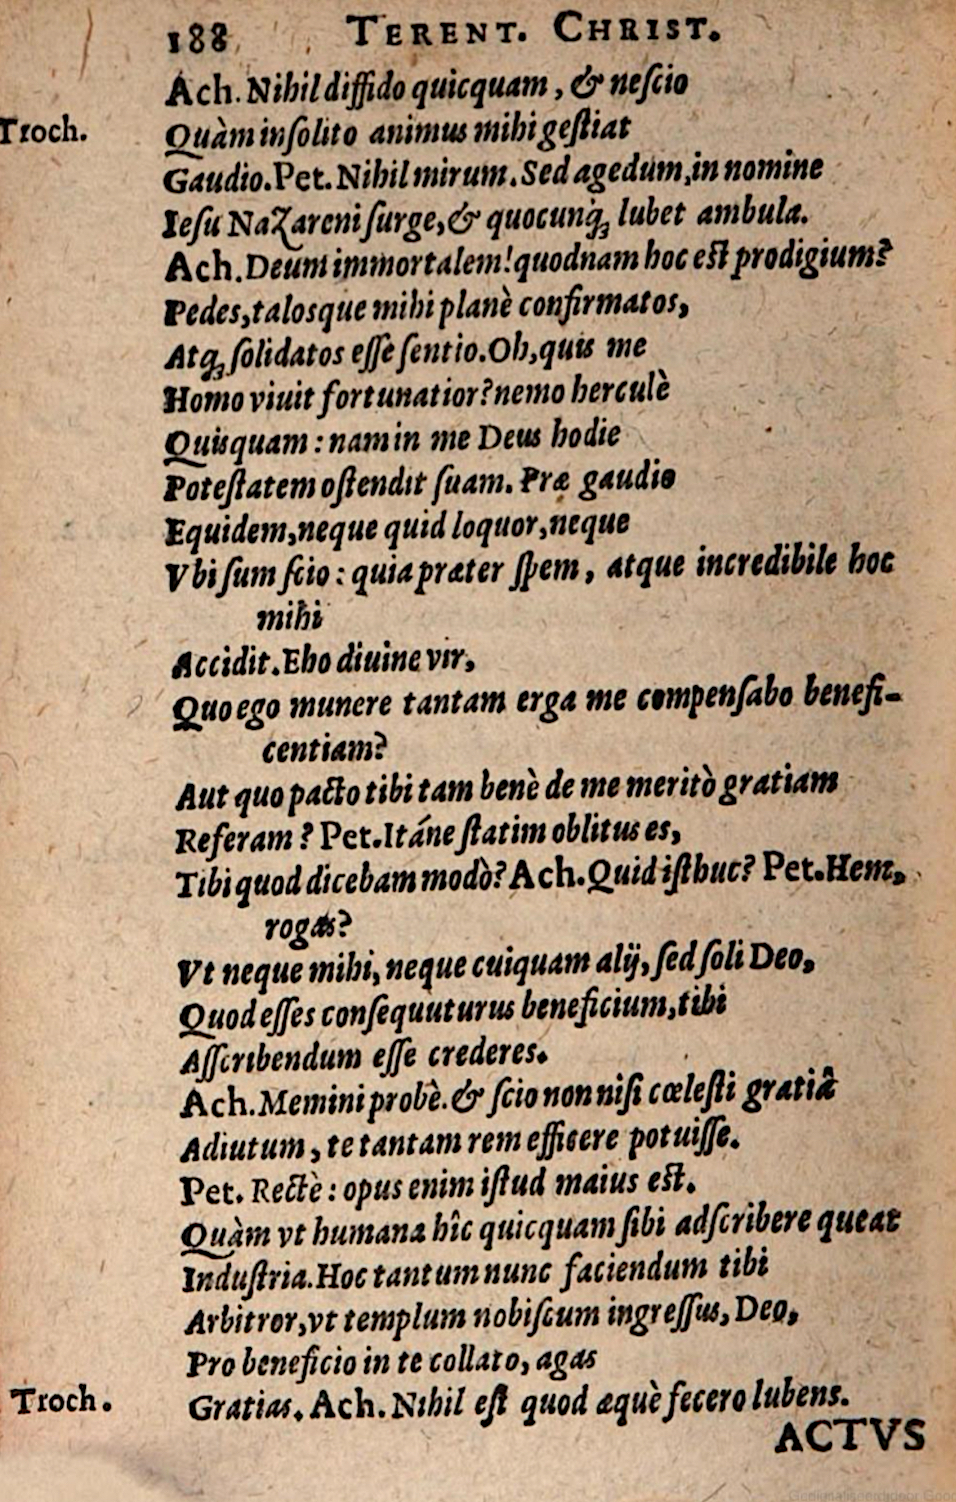 188 TERENT. CHRIST.
Ach. Nihil diffido quicquam, & neſcio
Troch. Quàm inſolito animus mihi geſtiat
Gaudio. Pet. Nihil mirum. Sed agedum, in nomine
Ieſu Nazareni ſurge, & quocunq; lubet ambula.
Ach. Deum immortalem! quodnam hoc est prodigium?
Pedes, talosque mihi planè confirmatos,
Atq; ſolidatos eſſe ſentio. Oh, quis me
Homo viuit fortunatior? nemo herculè
Quisquam: nam in me Deus hodie
Poteſtatem oſtendit ſuam. Præ gaudio
Equidem, neque quid loquor, neque
Vbi ſum ſcio: quia præter ſpem, atque incredibile hoc
mihi
Accidit. Eho diuine vir,
Quo ego munere tantam erga me compenſabo benefi-
centiam?
Aut quo pacto tibi tam benè de me meritò gratiam
Referam? Pet. Itáne ſtatim oblitus es,
Tibi quod dicebam modò? Ach. Quid iſthuc? Pet. Hem,
rogas?
Vt neque mihi, neque cuiquam alij, ſed ſoli Deo,
Quod eſſes conſequuturus beneficium, tibi
Aſſcribendum eſſe crederes.
Ach. Memini probè. & ſcio non niſi cœleſti gratiâ
Adiutum, te tantam rem efficere potuiſſe.
Pet. Rectè: opus enim iſtud maius est.
Quàm vt humana hîc quicquam ſibi adſcribere queat
Induſtria. Hoc tantum nunc faciendum tibi
Arbitror, vt templum nobiſcum ingreſſus, Deo,
Pro beneficio in te collato, agas
Troch. Gratias. Ach. Nihil eſt quod æquè fecero lubens.
ACTVS